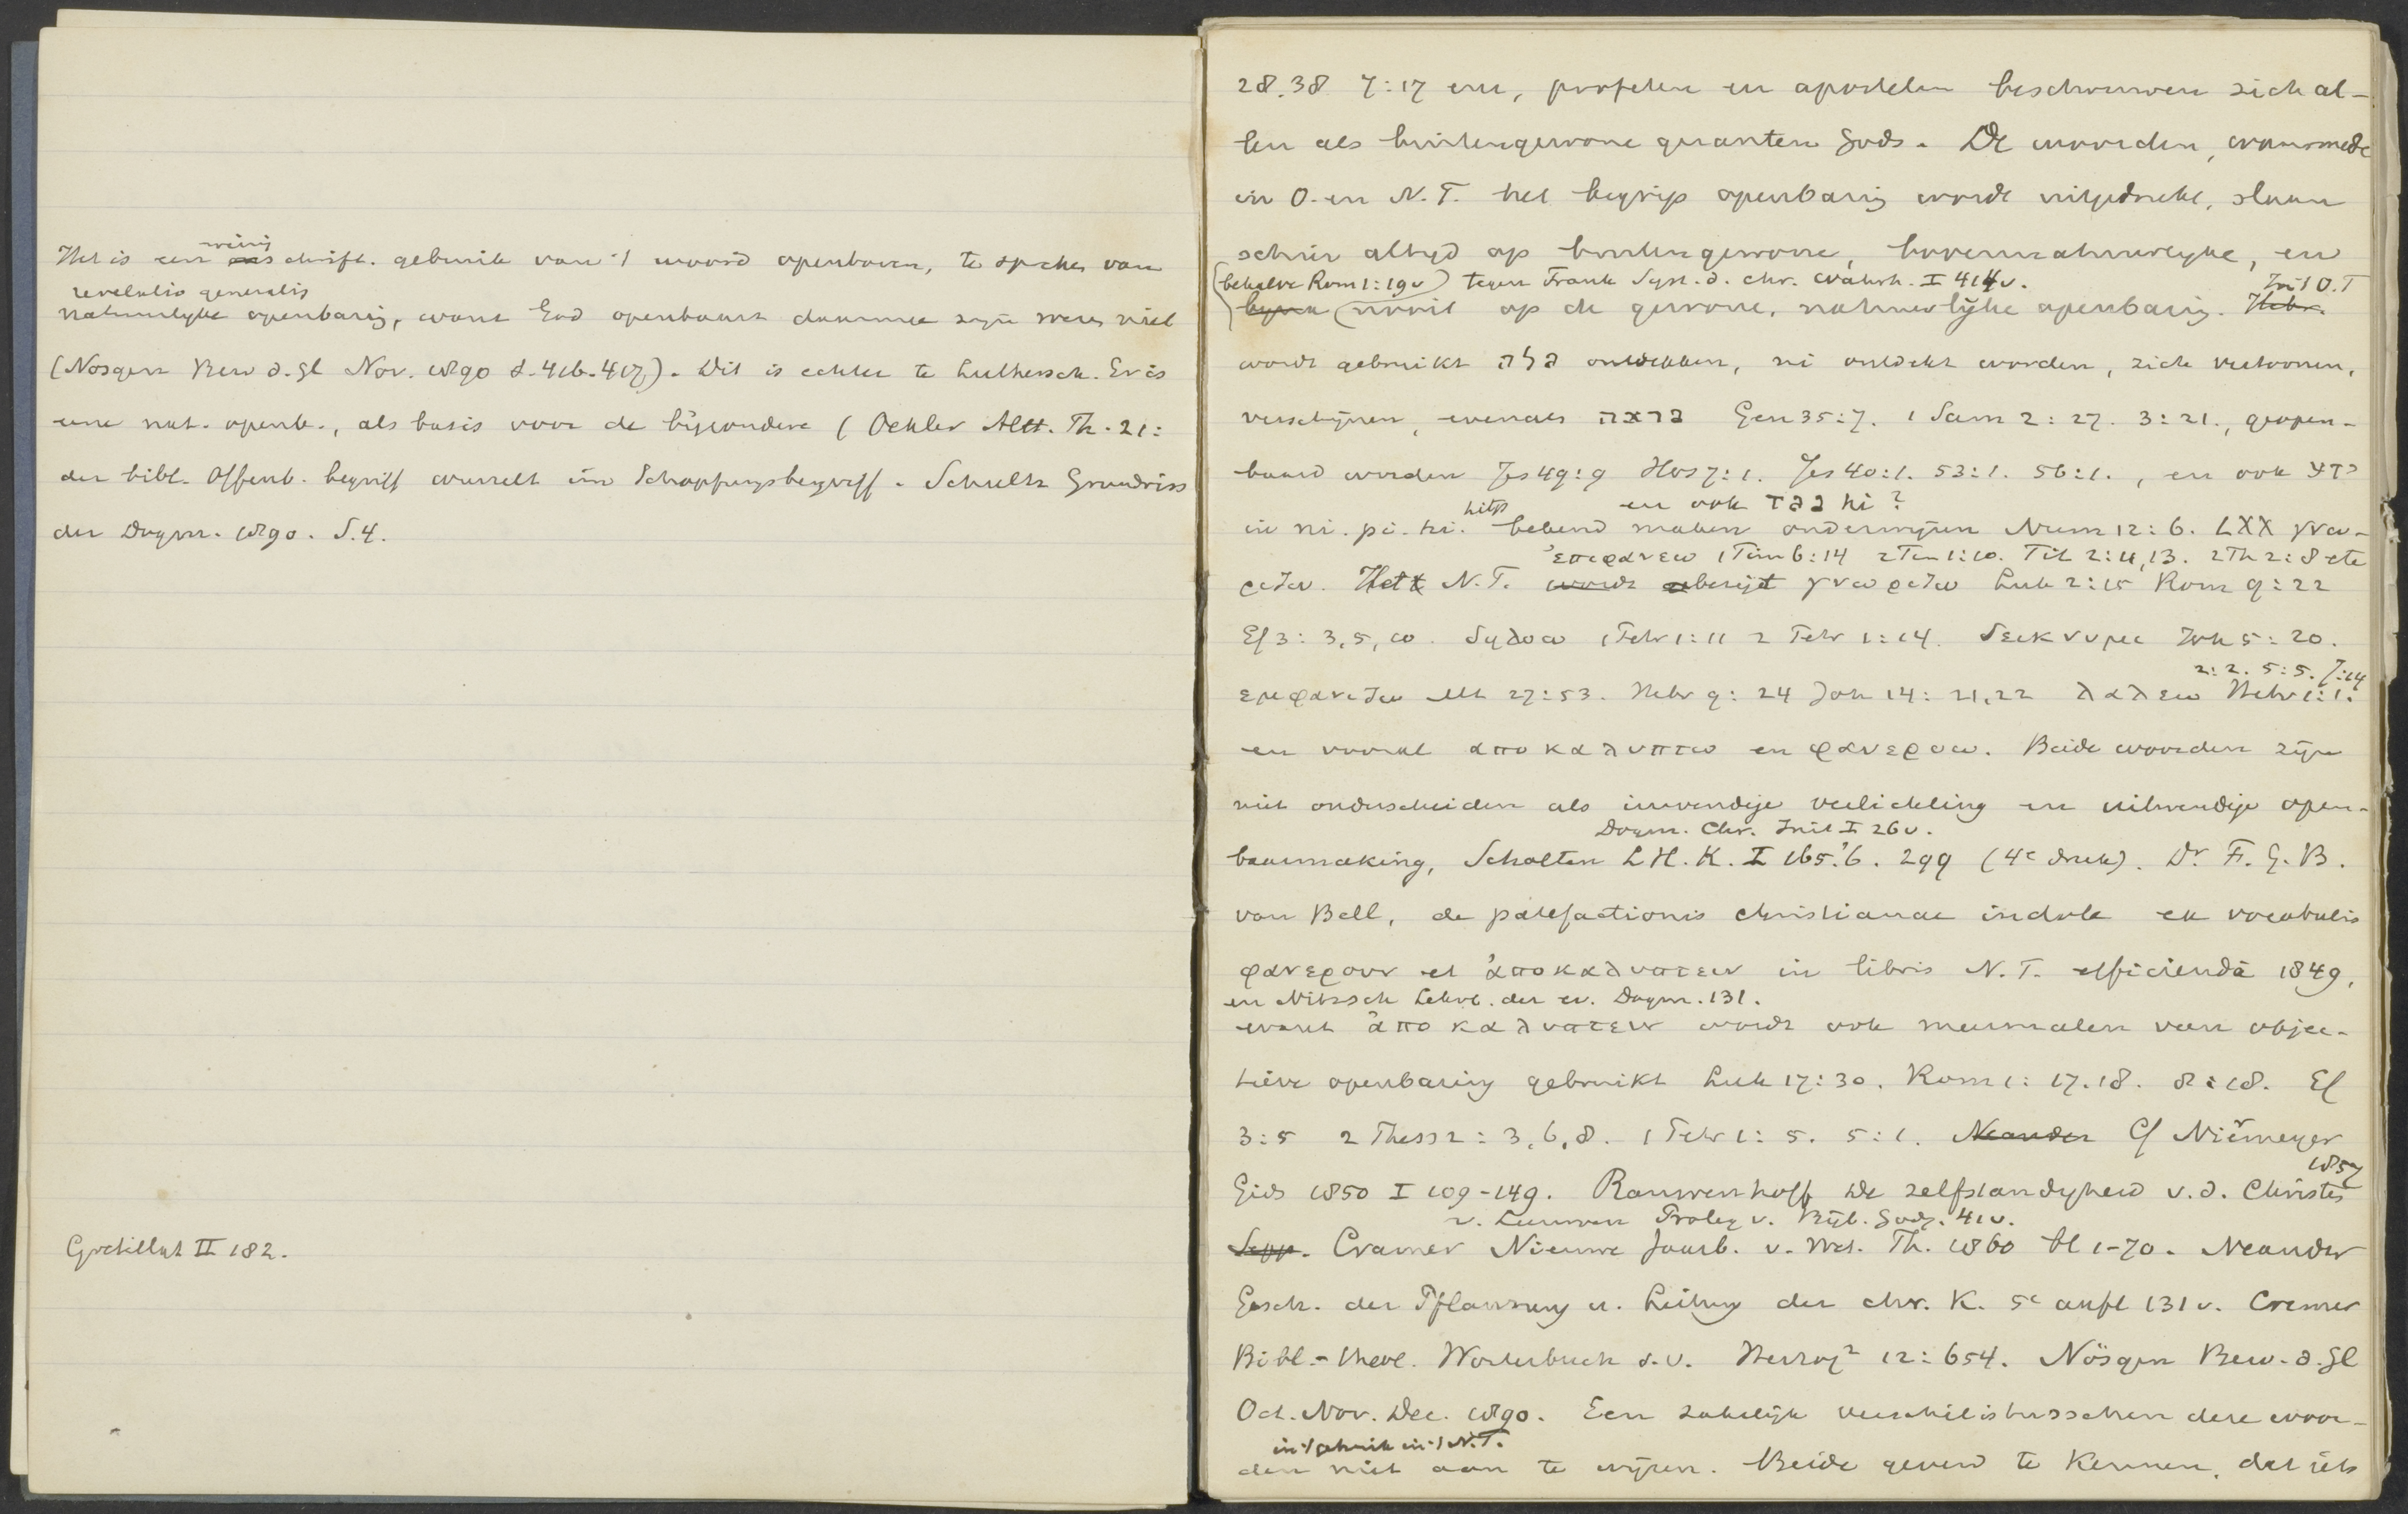 weinig
Het is een schrift. gebruik van 't woord openbaren, te spreken van
revelatio generalis
natuurlyke openbaring, want God openbaart daarmee zijn wezen niet
(Nösgen Bew d. Gl Nov. 1890 S. 416-417). Dit is echter te Luthersch. Er is
eene nat. openb., als basis voor de bijzondere (Oehler Altt. Th. 21:
der bibl. Offenb. begriff wurzelt im Schöpfungsbegriff. Schultz Grundriss
der Dogm. 1890. S. 4.
Gretillat II 182.
28.38 7:17 enz, profeten en apostelen beschouwen zich al-
len als buitengewone gezanten Gods. De woorden, waarmede
in O. en N. T. het begrip openbaring wordt uitgedrukt, slaan
schier altyd op buitengewone, bovennatuurlyke, en
(behalve Rom 1:19v) tegen Frank Syst. d. chr. Wahrh. I 414v. In 't O.T
nooit op de gewone, natuurlijke openbaring. Hebr.
wordt gebruikt גלה ontdekken, ni ontdekt worden, zich vertoonen,
verschijnen, evenals נראה Gen 35:7. 1 Sam 2:27. 3:21., geopen-
baard worden Jes 49:9 Hos 7:1. Jes 40:1. 53:1. 56:1., en ook ידע
hitp en ook נגד hi?
in ni. pi. hi. bekend maken onderwijzen Num 12:6. LXX γνω-
ἐπιφανεω 1 Tim 6:14 2 Tim 1:10. Tit 2:11,13. 2 Th 2:8 etc
ριζω. Het N.T. wordt gνωριζω Luk 2:15 Rom 9:22
Ef 3:3,5,10. δηλοω 1 Petr 1:11 2 Petr 1:14. δεικνυμι Joh 5:20.
2:2. 5:5. 7:14
εμφανιζω Mt 27:53. Hebr 9:24 Joh 14:21,22 λαλεω Hebr 1:1.
en vooral αποκαλυπτω en φανεροω. Beide woorden zijn
niet onderscheiden als inwendige verlichting en uitwendige open-
Dogm. Chr. Init I 26v.
baarmaking, Scholten L.H.K. I 165.'6. 299 (4e druk). Dr. F. G. B.
van Bell, de patefactionis christianae indole ex vocabulis
φανερουν et ἀποκαλυπτειν in libris N. T. efficienda 1849,
en Nitzsch Lehrb. der ev. Dogm. 131.
want ἀποκαλυπτειν wordt ook meermalen van objec-
tieve openbaring gebruikt Luk 17:30. Rom 1:17.18. 8:18. Ef
3:5 2 Thess 2:3,6,8. 1 Petr 1:5. 5:1. Neander Cf Niermeyer
1857
Gids 1850 I 109-149. Rauwenhoff De zelfstandyheid v. d. Christen
v. Leeuwen Proleg v. Bijb. Godg. 41v.
Sepp. Cramer Nieuwe Jaarb. v. Wet. Th. 1860 bl 1-70. Neander
Gesch. der Pflanzung u. Leitung der chr. K. 5e aufl 131v. Cremer
Bibl.-theol. Wörterbuch s.v. Herzog2 12:654. Nösgen Bew. d. Gl
Oct. Nov. Dec. 1890. Een zakelijk verschil is tusschen deze woor-
in 't gebruik in 't N.T.
den niet aan te wijzen. Beide geven te kennen, dat iets